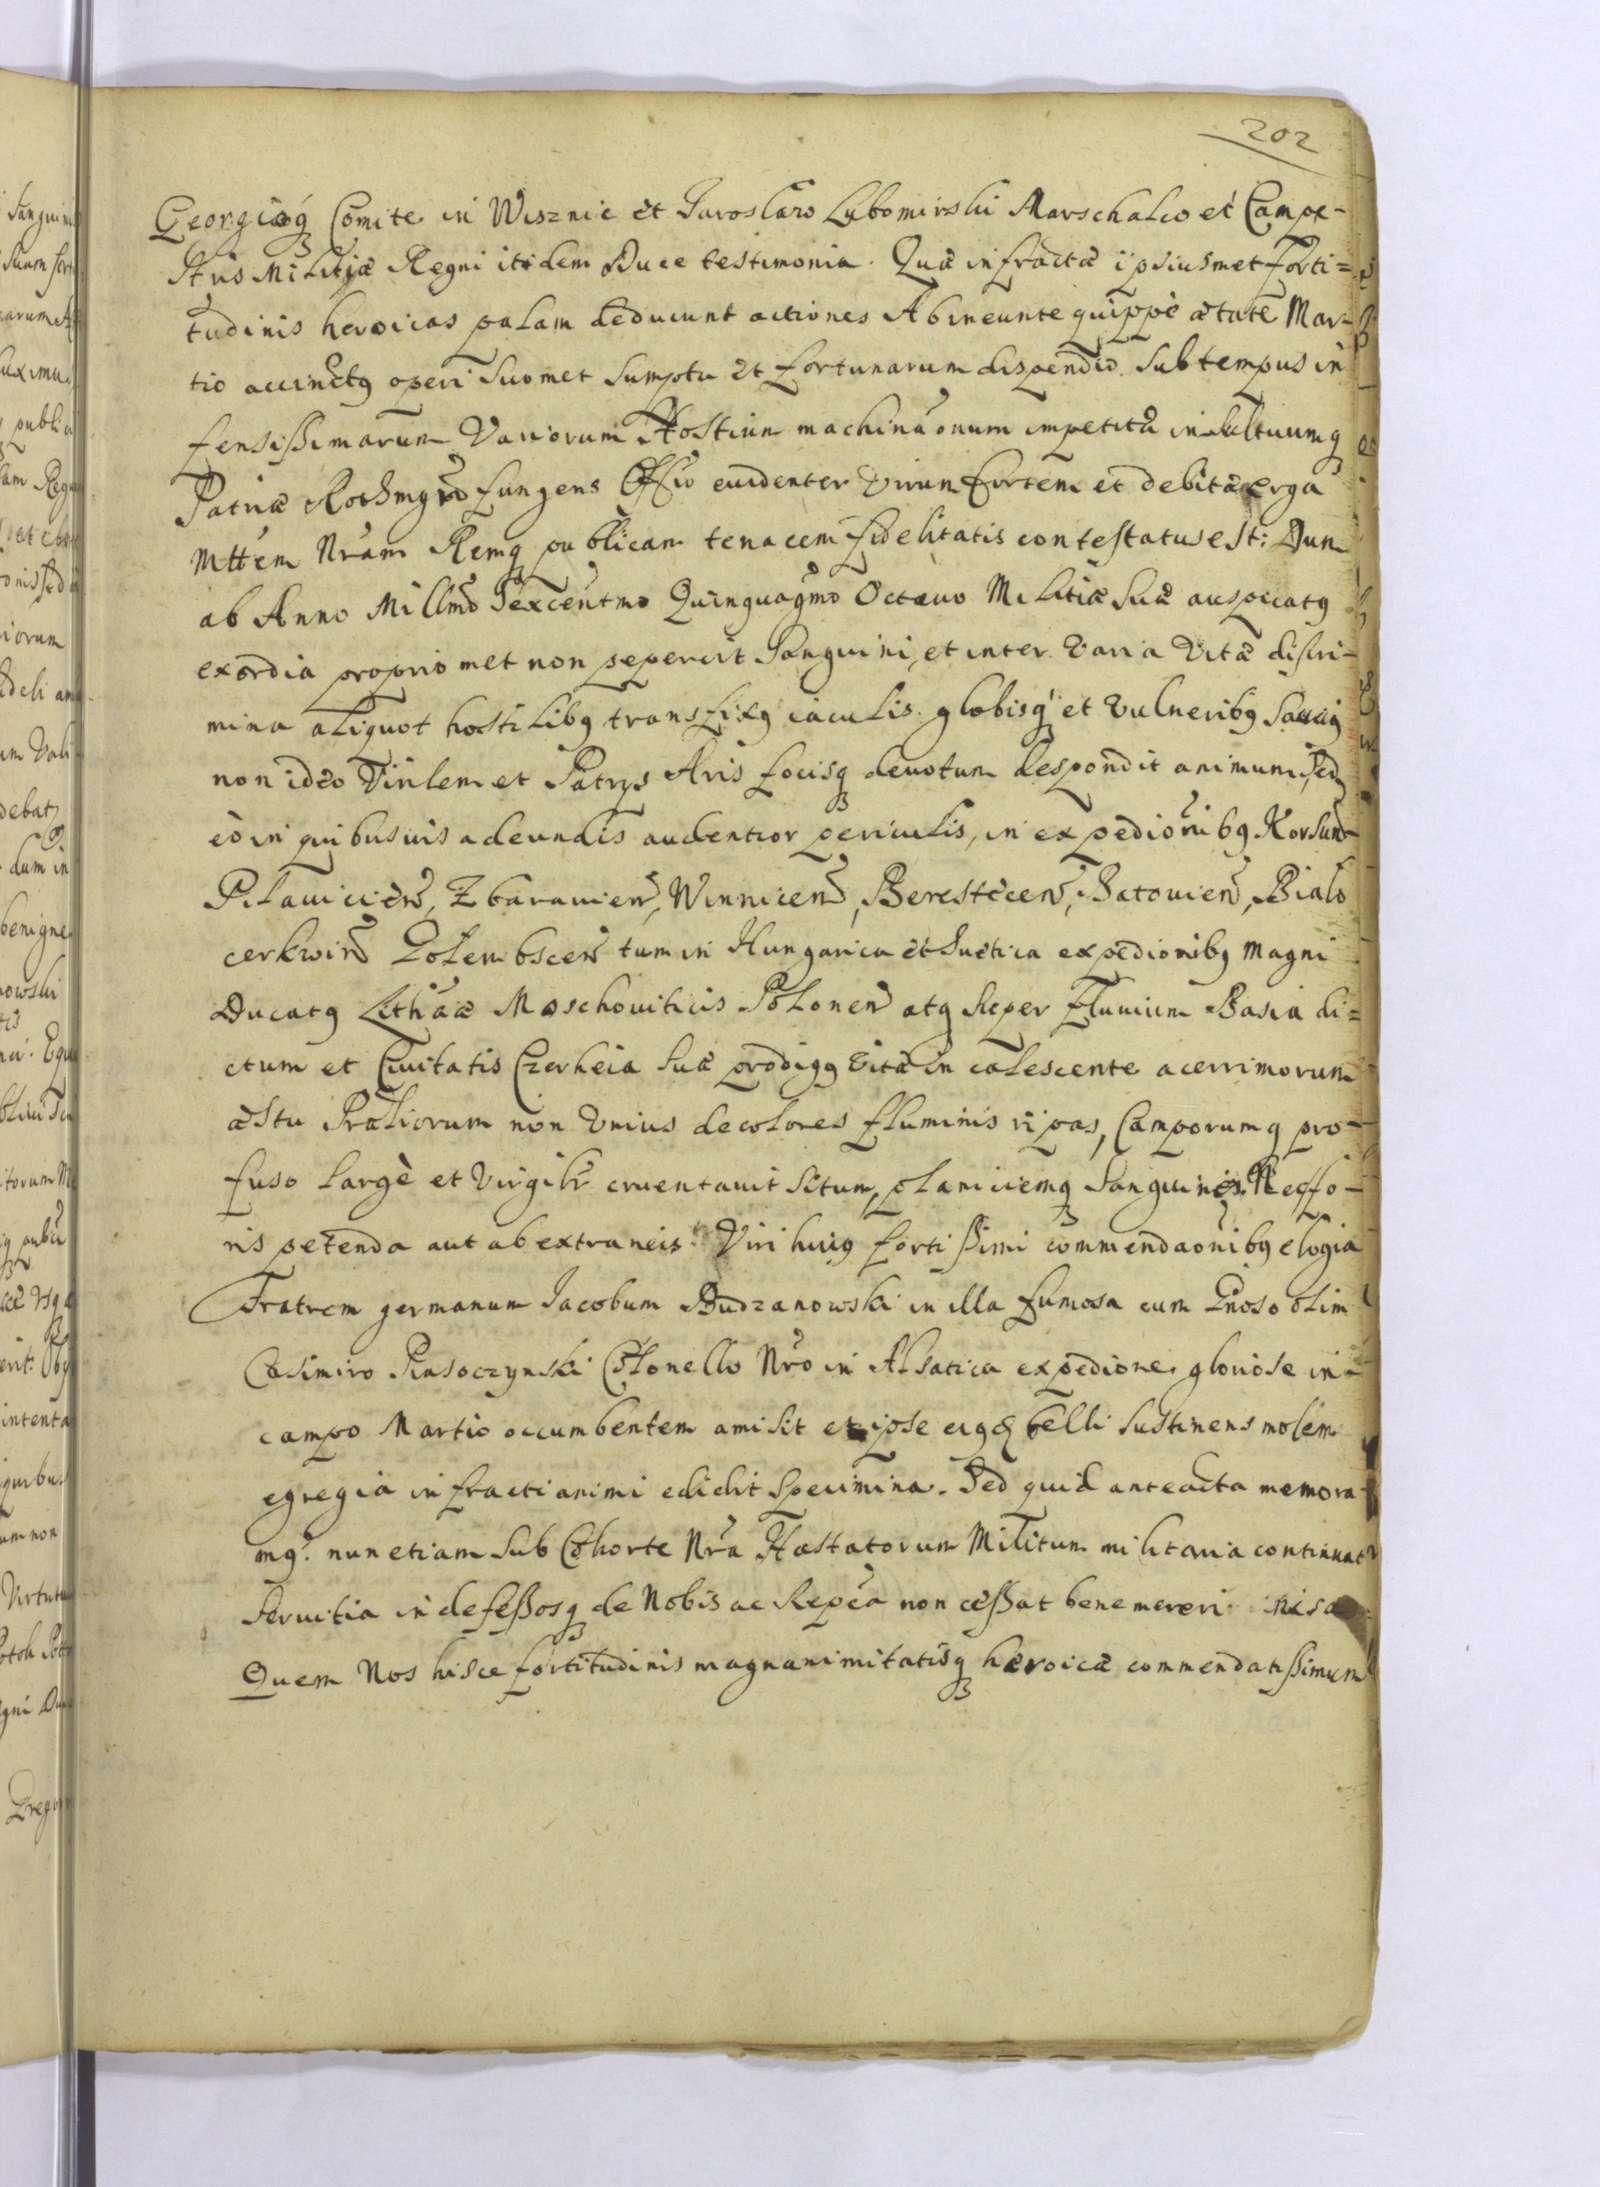 202
Georgioq Comite in Wisznic et Jaroslaw Lubomirski Marschalco et Campe-
stris Militiæ Regni itidem Duce testimonia. Quæ infractæ ipsiusmet forti-
tudinis heroicas palam deducunt actiones Ab ineunte quippe ætate Mar-
tio accinctq operi suomet sumptu et fortunarum dispendio, sub tempus in
fensissimarum Variorum Hostium machinaonum impetitæ insultuumq
Patriæ Rothmgro fungens Offio euidenter Virum fortem et debitæ erga
Mttem Nram Remq publicam tenacem fidelitatis contestatus est: Dum
ab Anno Millmo Sexcentmo Quinquagmo Octauo Militiæ suæ auspicatq
exordia propriomet non pepercit Sanguini, et inter varia vitæ discri-
mina aliquot hostilibq transfixq iaculis globisq et vulneribq Sauciq
non ideo Virilem et Patrys Aris focisq deuotum despondit animum, sed
eo in quibusuis adeundis audentior periculis, in expedionibq Korsun
Pilauicien, Zbarauien, Winnicen, Berestecen, Batouien, Bialo
cerkwin Golembscen tum in Hungarica et Suetica expedionibq Magni
Ducatq Lithuaæ Moschouiticis Polonen atq super fluuium Basia di-
ctum et Ciuitatis Czerheia suæ prodigq vitæ in calescente acerrimorum
æstu Præliorum non vnius decolores fluminis ripas, Camporumq pro-
fuso largè et virgilr cruentauit situm, planiciemq Sanguine. Nec fo-
ris petenda aut ab extraneis Viri huiq fortissimi commendaonibq elogia
Fratrem germanum Jacobum Budzanowski in illa fumosa cum Gnoso olim
Casimiro Piasoczynski Colonello Nro in Alsatica expedione gloriose in
campo Martio occumbentem amisit et ipse belli sustinens molem
egregia infracti animi edidit specimina. Sed quid anteacta memora-
mq. nunc etiam sub Cohorte Nra Hastatorum Militum militaria continuat
seruitia indefessosq de Nobis ac Repca non cessat bene mereri
Quem Nos hisce fortitudinis magnanimitatisq heroicæ commendatissimum